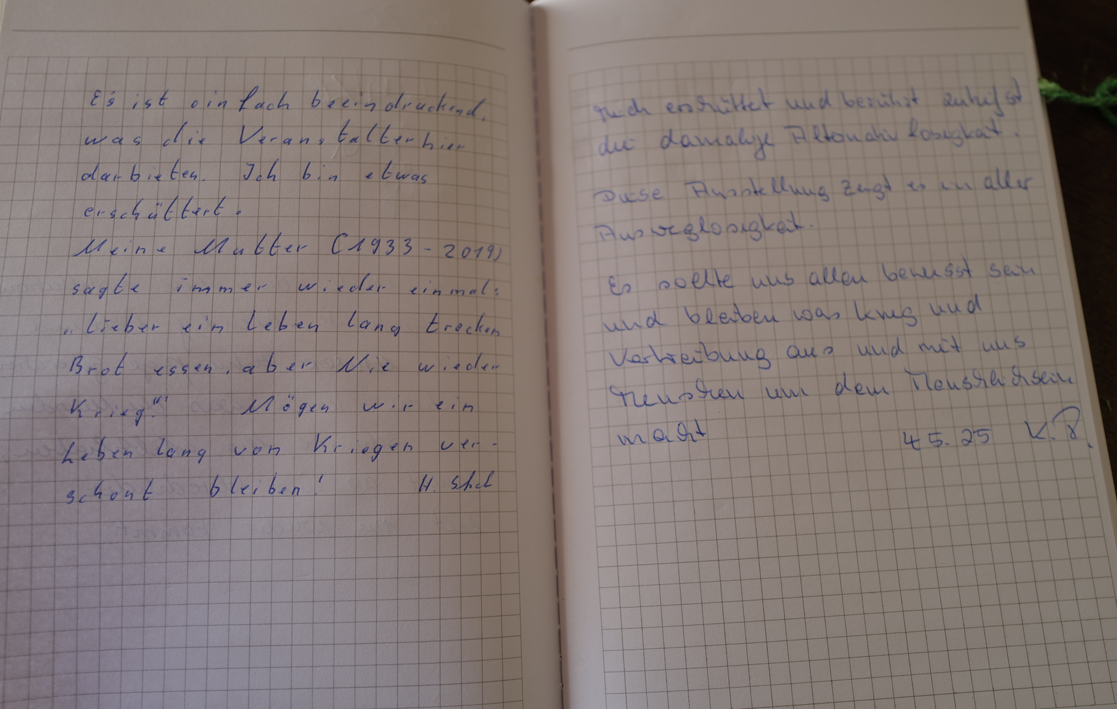 Es ist einfach beeindruckend,
was die Veranstalter hier
darbieten. Ich bin etwas
erschüttert.
Meine Mutter (1933-2019)
sagte immer wieder einmal:
„Lieber ein Leben lang trocken
Brot essen, aber Nie wieder
Krieg!" Mögen wir ein
Leben lang von Kriegen ver-
schont bleiben! H.
erschüttet und berührt zutiefst
die damalige Alternativlosigkeit.
Diese Ausstellung zeigt es in aller
Ausweglosigkeit.
Es sollte uns allen bewusst sein
und bleiben was Krieg und
Vertreibung aus und mit uns
Menschen und dem Menschlichsein
macht
4 5. 25 K.P.